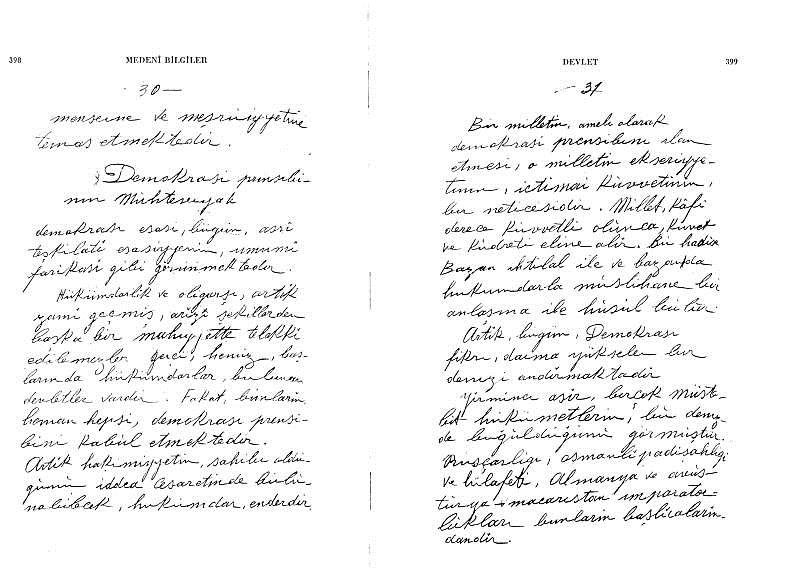 398
MEDENİ BİLGİLER
30—
menşeine ve meşruiyyetine
temas etmektedir.
§ Demokrasi prensibi-
nin
demokrasi esası, bugün, asrî
teşkilâtı esasiyyenin, umumî
farikası gibi görünmektedir.
Hükümdarlık ve oligarşi, artık
geçmiş, arızî şekillerden
başka bir mahiyyette telekki
edilemezler gerçi, henüz, baş-
larında hükümdarlar, bulunan
devletler vardır. Fakat, bunların
heman hepsi, demokrasi prensi-
bini kabul etmektedir.
Artık hakimiyyetin, sahibi oldu-
ğunu iddea cesaretinde bulu-
nabilecek, hukümdar, enderdir.
DEVLET
399
— 31
Bir milletin, amelî olarak
demokrasi prensibini ilan
etmesi, o milletin ekseriyye-
tinin, ictimaî kuvvetinin,
bir neticesidir. Millet, kâfi
derece kuvvetli olunca, kuvvet
ve kudreti eline alır. Bu hadise
Bazan ihtilal ile ve bazan da
hukümdarla müslihane bir
anlaşma ile husul bulur.
Artık, bugün, Demokrasi
fikri, daima yükselen bir
denizi andırmaktadır
Yirminci asır, birçok müste-
bit hükümetlerin, bu deniz-
de buğulduğunu görmüştür.
Rusçarlığı, osmanlı padişahlığı
ve hilafeti, Almanya ve avus-
turya - macaristan imparator-
lukları bunların başlıcaların-
dandır.